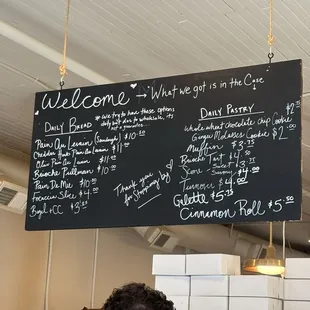 Welcome → What we got is in the Case
Daily Bread
*we try to have these options
due to wholesale, its
not a guarantee
Pain Au Levain (Sandwich) $10.50
Pain Au Levain $11.00
Brioche Pullman $10.00
Pain De Mie $10.00
Focaccia Slice $
Bagel + CC $3.50
Thank you
for stopping by
Daily Pastry
Whole wheat chocolate chip Cookie $2.
Ginger Molasses Cookie $2.
Muffin $3.75
Brioche Tart $4.50
Scone Savory $3.75
Turnover $4.00
Galette $5.50
Cinnamon Roll $5.50